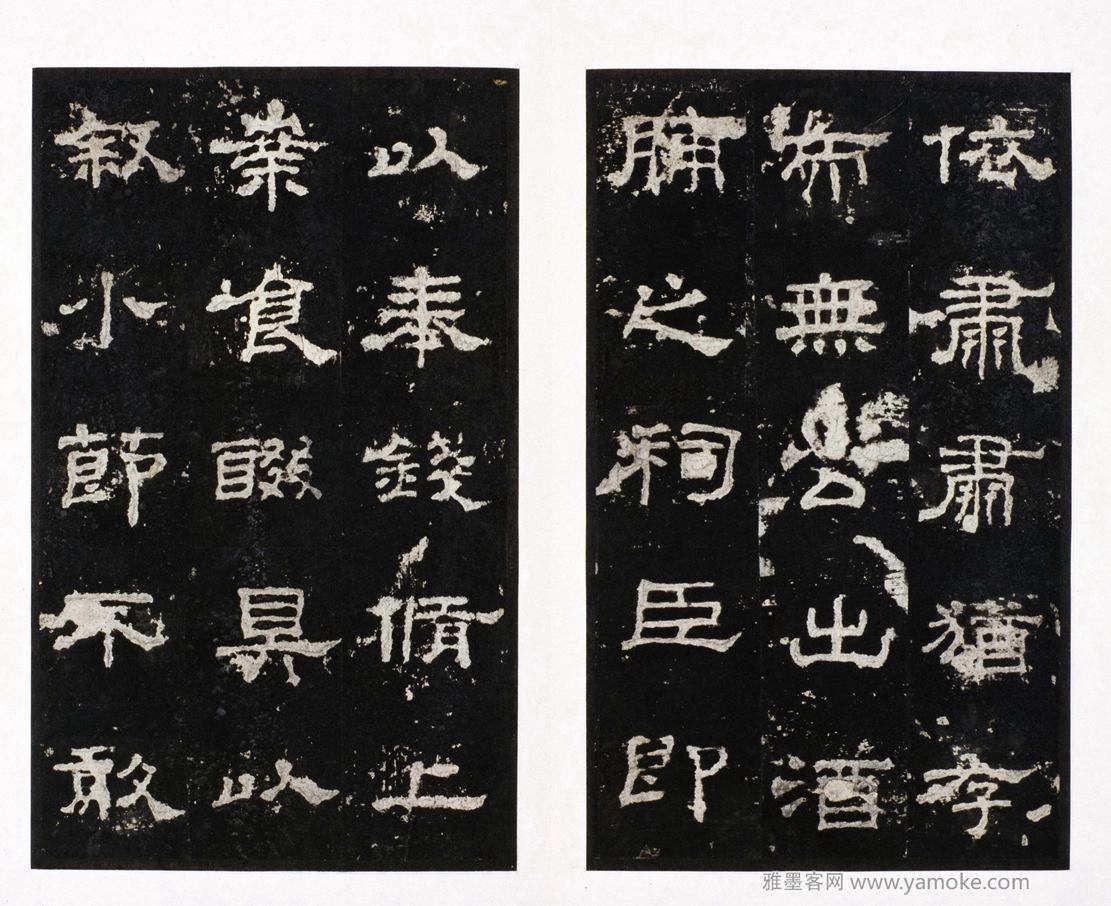 依肅肅猶存
而無公出酒
脯之祠臣即
以奉錢脩上
案食醊具以
叙小節不敢
雅墨客网 www.yamoke.com